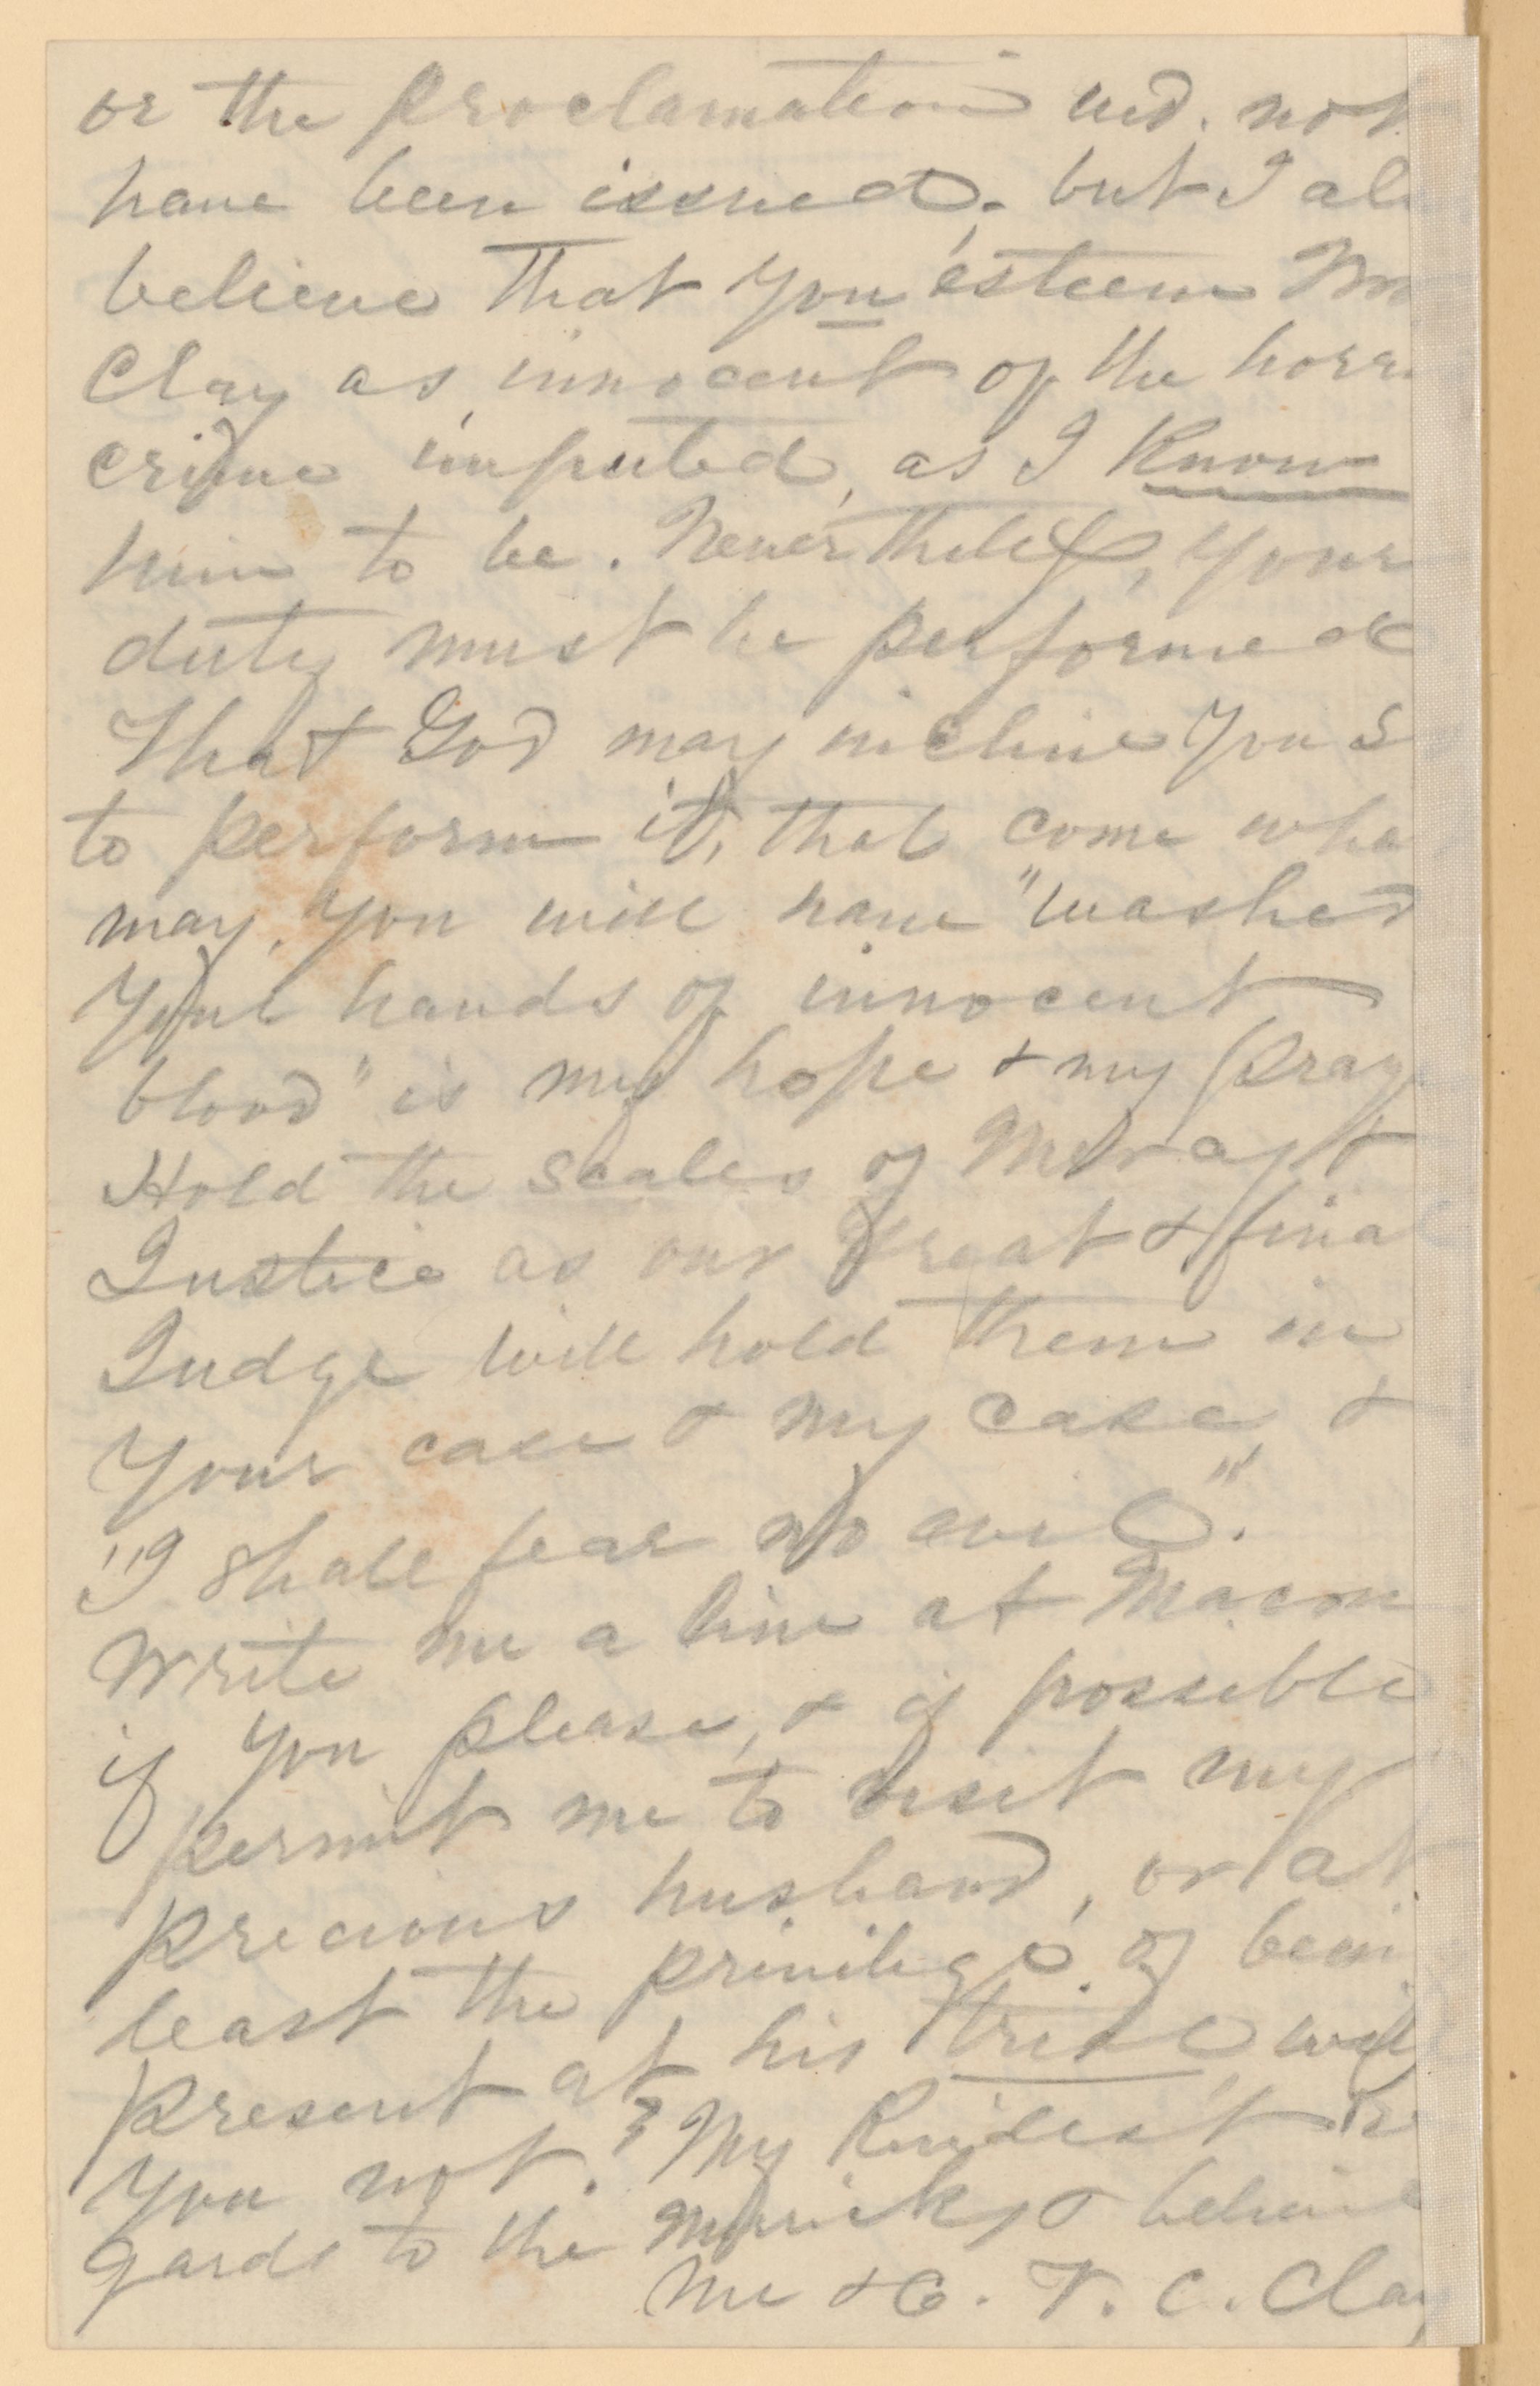 or the proclamation wd. not
have been issued; but I al
believe that you esteem Mr
Clay as innocent of the horr
crime imputed, as I know
him to be. Nevertheless, your
duty must be performed
That God may incline you s
to perform it, that come wha
may, you will have "washed
your hands of innocent
blood" is my hope & my pray
Hold the scales of Mercy &
Justice as our great & fina
Judge will hold them in
your case & my case, &
"I shall fear no evil".
Write me a line at Macon
if you please, & if possible
permit me to visit my
precious husband, or at
least the privilege of bein
present at his trial, will
you not? My kindest re
gards to the & believe
me &c. V. C. Clay